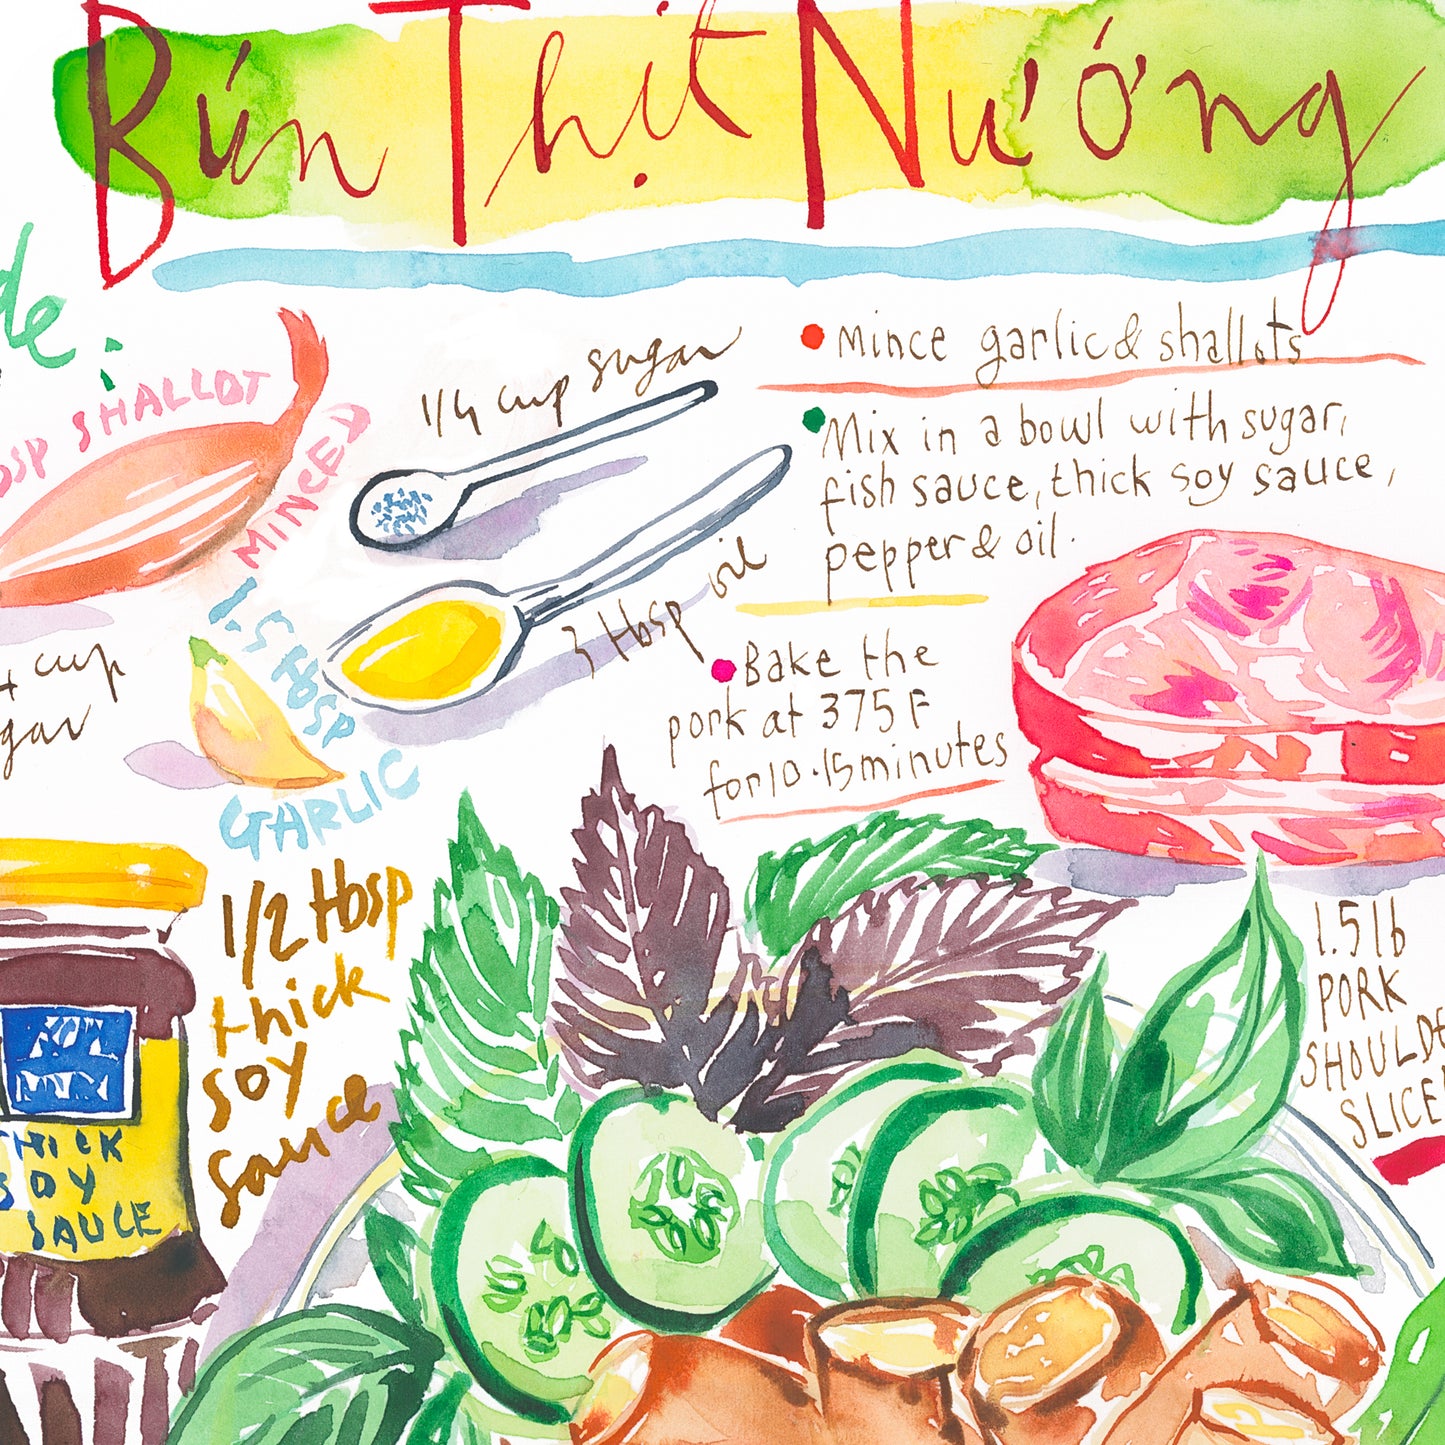 Bún Thịt Nướng
de:
SHALLOT
MINCED
1/4 cup sugar
3 tbsp oil
1.5 tbsp
GARLIC
cup
1/2 tbsp
thick
soy
sauce
THICK
SOY
SAUCE
mince garlic & shallots
Mix in a bowl with sugar,
fish sauce, thick soy sauce,
pepper & oil.
Bake the
pork at 375 F
for 10-15 minutes
1.5 lb
PORK